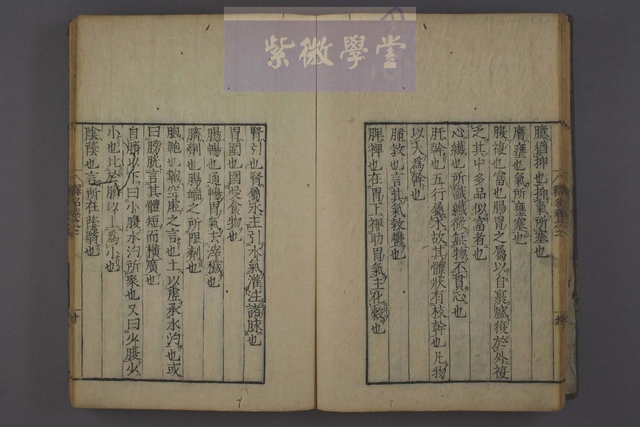 紫微學堂
臆猶抑也抑氣所塞也
膺壅也氣所壅塞也
腹複也富也腸胃之屬以自裹盛復於外複
之其中多品似富者也
心纖也所識纖微無物不貫心也
肝幹也五行屬木故其體狀有枝幹也凡物
以大為幹也
肺勃也言其氣勃鬱也
脾裨也在胃下裨助胃氣主化穀也
腎引也腎屬水主引水氣灌注諸脉也
胃圍也圍受食物也
腸暢也通暢胃氣去滓穢也
臍劑也腸端之所限劑也
胞鞄也鞄空虛之言也主以虛承水汋也或
曰膀胱言其體短而橫廣也
自臍以下曰水腹水汋所聚也又曰少腹少
小也比於臍以上為小也
陰蔭也言所在蔭翳也